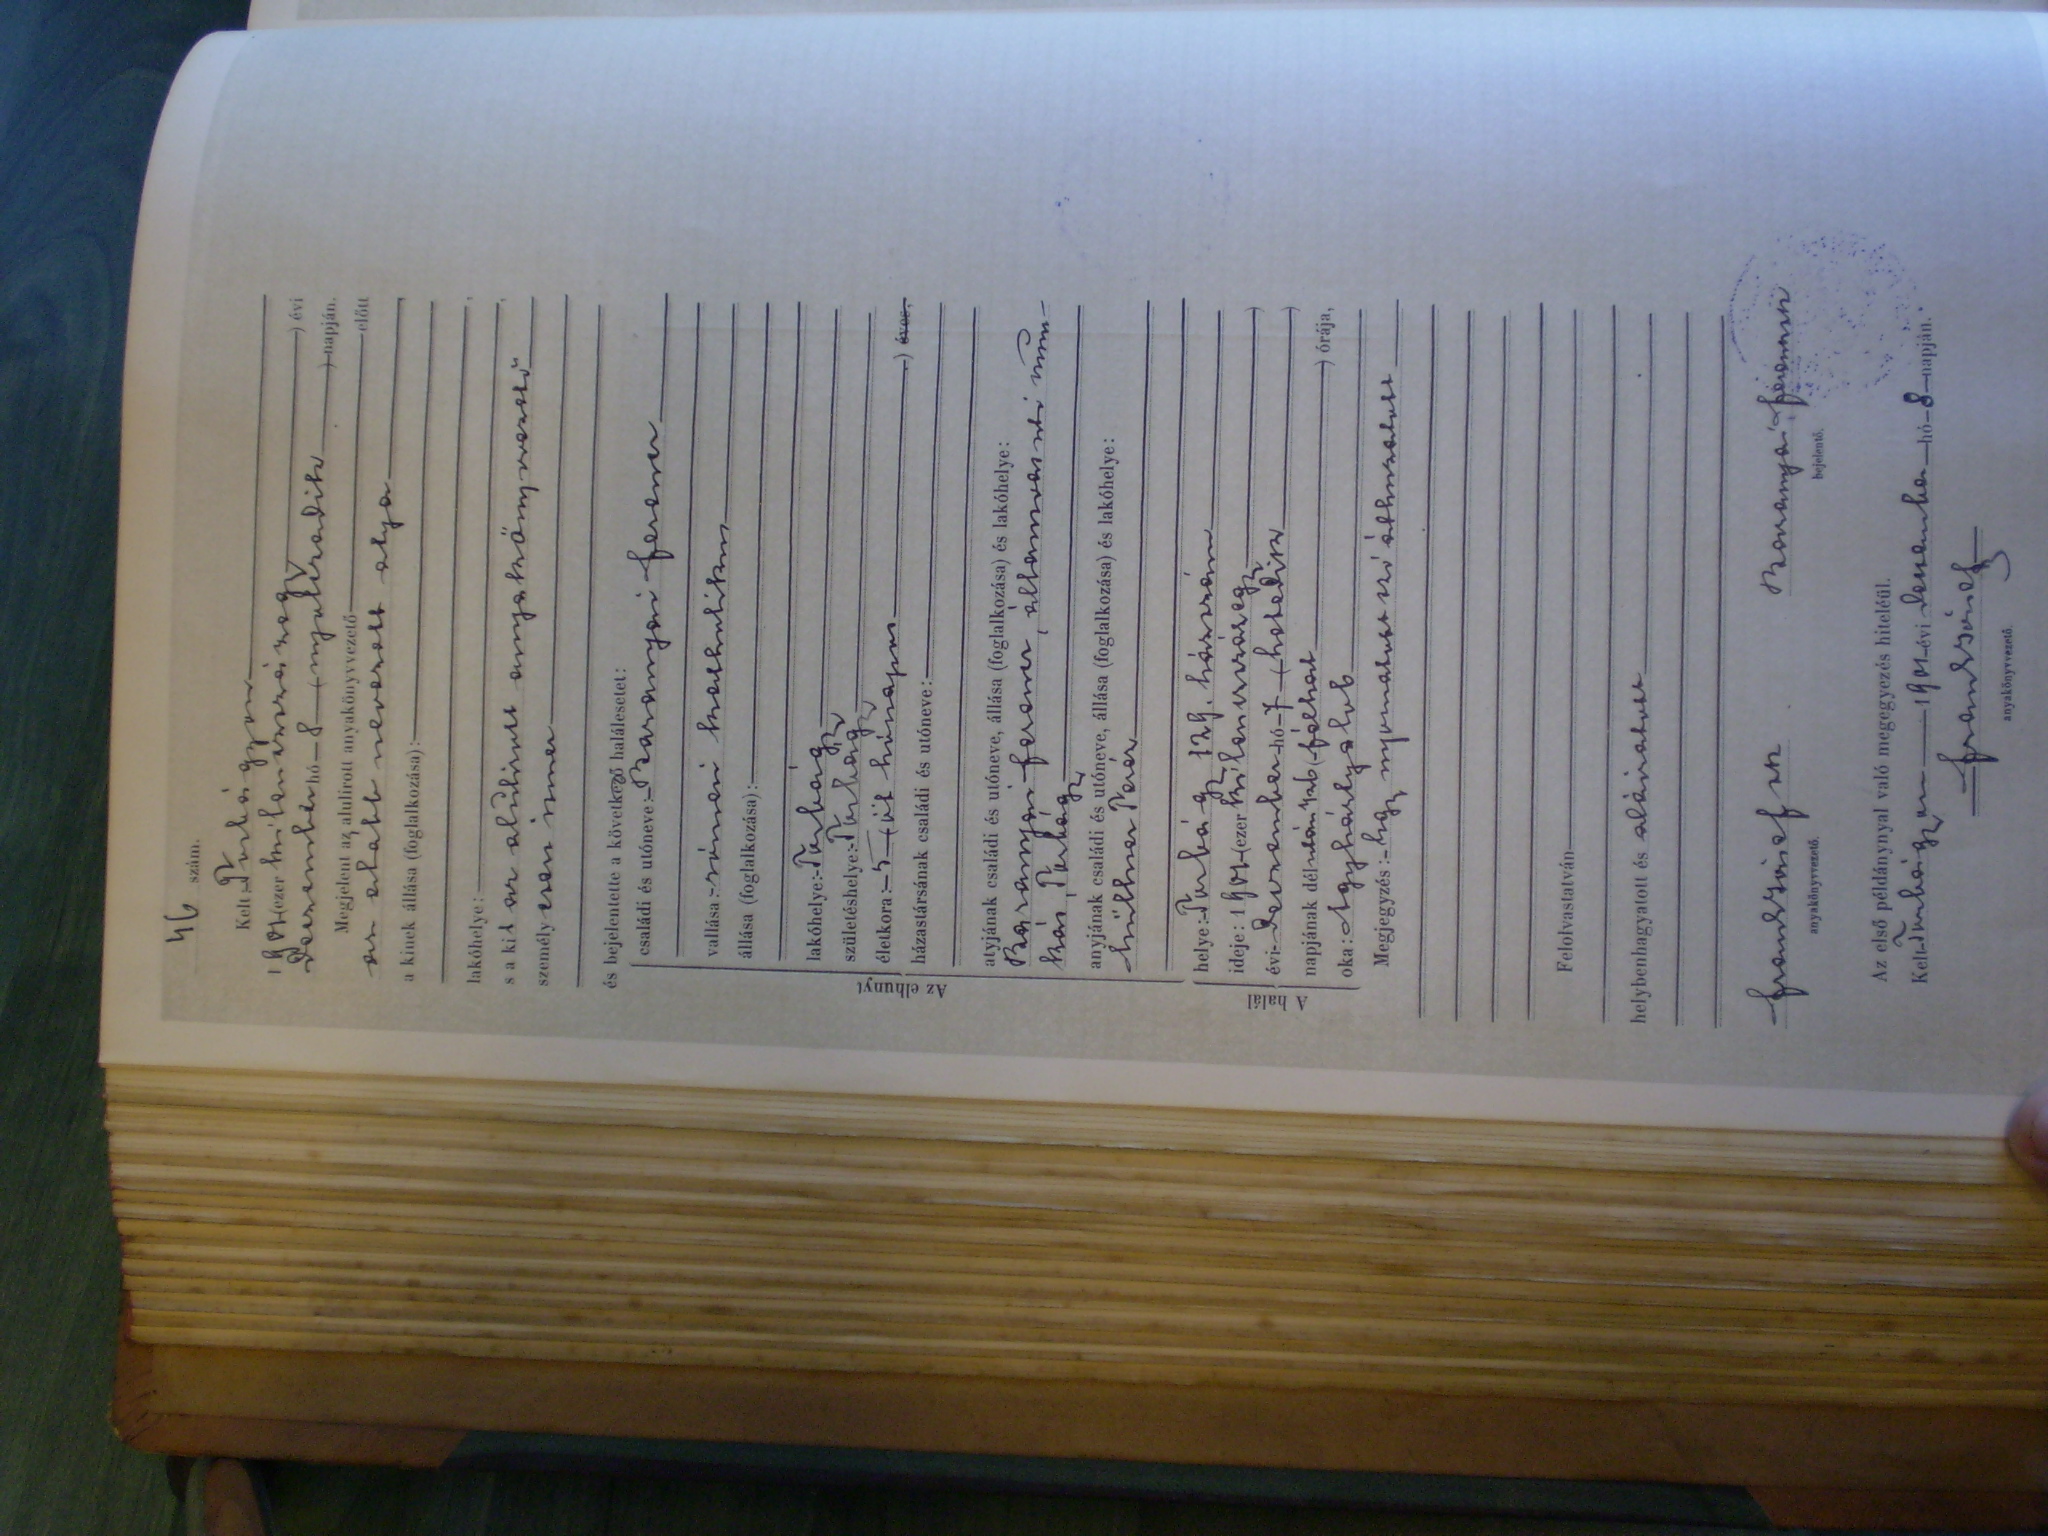 46 szám.
Kelt Turbágyon
1901 (ezer kilenczszázegy) évi
Deczember hó 8 (nyolczadik) napján.
Megjelent az alulirott anyakönyvvezető előtt
az alább nevezett atyja
a kinek állása (foglalkozása):
lakóhelye:
s a kit az alúlirott anyakönyvvezető
személyesen ismer
és bejelentette a következő halálesetet:
Az elhunyt
családi és utóneve: Baranyai Ferencz
vallása: római katholikus
állása (foglalkozása):
lakóhelye: Turbágy
születéshelye: Turbágy
életkora: 5 (öt hónapos) éves,
házastársának családi és utóneve:
atyjának családi és utóneve, állása (foglalkozása) és lakóhelye:
Baranyai Ferencz, államvasuti mun-
kás, Turbágy
anyjának családi és utóneve, állása (foglalkozása) és lakóhelye:
Teréz
A halál
helye: Turbágy 129. házszám
ideje: 1901 (ezer kilenczszázegy)
évi deczember hó 7 (hetedik)
napjának délután 1/26 (félhat) órája,
oka: Agyhártyalob
Megjegyzés: Egy nyomtatott szó áthuzatott
Felolvastatván
helybenhagyatott és aláiratott
Baranyai Ferencz
anyakönyvvezető. bejelentő.
Az első példánynyal való megegyezés hiteléül.
Kelt Turbágyon 1901 évi deczember hó 8 napján.
anyakönyvvezető.